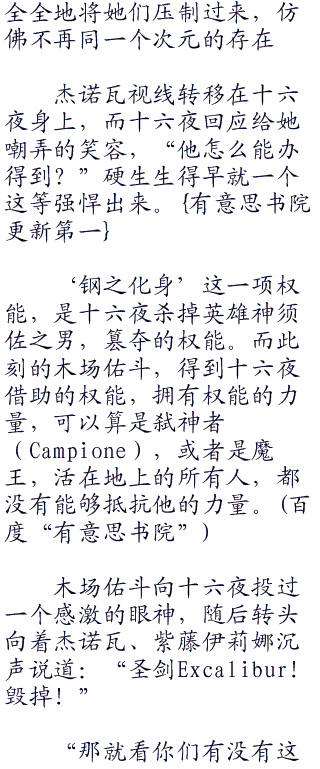 全全地将她们压制过来，仿
佛不再同一个次元的存在
杰诺瓦视线转移在十六
夜身上，而十六夜回应给她
嘲弄的笑容，“他怎么能办
得到？”硬生生得早就一个
这等强悍出来。{有意思书院
更新第一}
‘钢之化身’这一项权
能，是十六夜杀掉英雄神须
佐之男，篡夺的权能。而此
刻的木场佑斗，得到十六夜
借助的权能，拥有权能的力
量，可以算是弑神者
（Campione），或者是魔
王，活在地上的所有人，都
没有能够抵抗他的力量。(百
度“有意思书院”)
木场佑斗向十六夜投过
一个感激的眼神，随后转头
向着杰诺瓦、紫藤伊莉娜沉
声说道：“圣剑Excalibur!
毁掉！”
“那就看你们有没有这